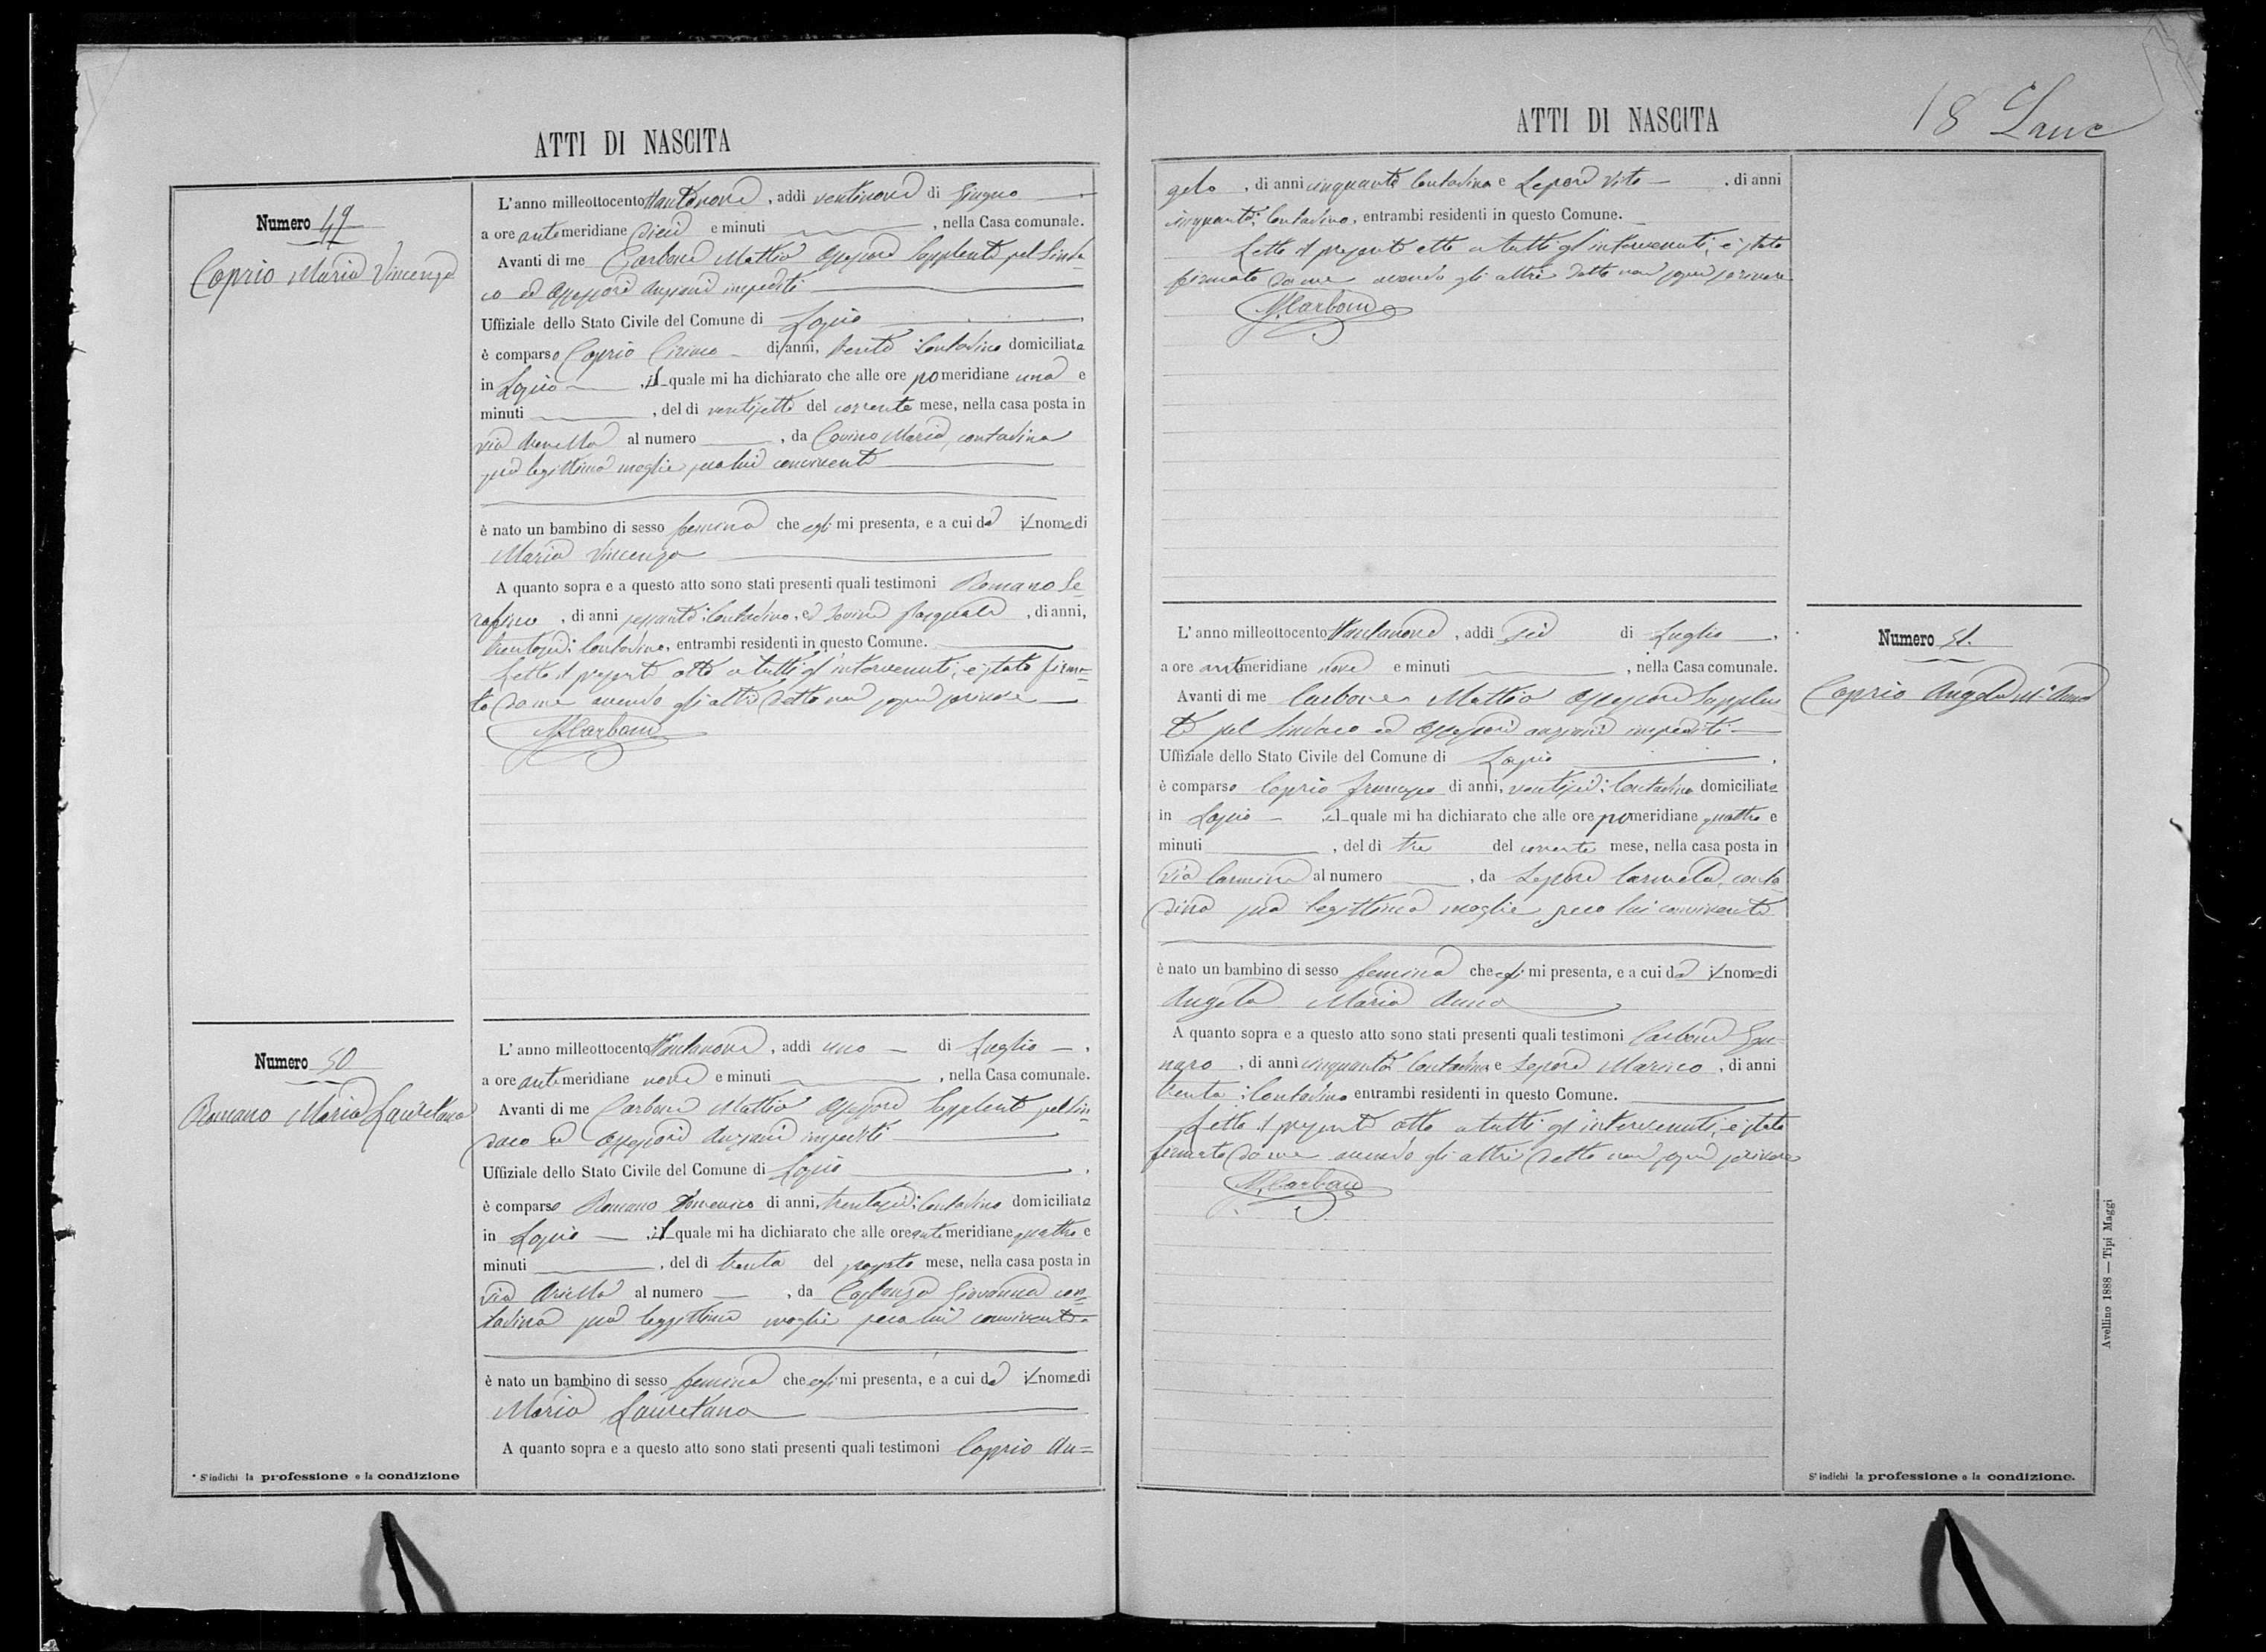 ATTI DI NASCITA
Numero 49
Caprio Maria Vincenza
L'anno milleottocentottantanove, addì ventinove di Giugno
a ore antimeridiane dieci e minuti , nella Casa comunale.
Avanti di me Carbone Mattio Assessore Supplente pel Sinda-
co ed Assessori Anziani impediti
Uffiziale dello Stato Civile del Comune di Lapio
è comparso Caprio Ciriaco di anni, trenta contadino domiciliato
in Lapio , il quale mi ha dichiarato che alle ore pomeridiane una e
minuti , del dì ventisette del corrente mese, nella casa posta in
via al numero , da Covino Maria, contadina
sua legittima moglie seco lui convivente
è nato un bambino di sesso femina che egli mi presenta, e a cui dà il nome di
Maria Vincenza
A quanto sopra e a questo atto sono stati presenti quali testimoni Romano Se-
rafino , di anni sessanta: Contadino, e Pasquale , di anni,
trentasei: Contadino, entrambi residenti in questo Comune.
Letto il presente atto a tutti gl'intervenuti, è stato firma-
to da me avendo gli altri detto non saper scrivere
M. Carbone
Numero 50
Romano Maria Lauretana
L'anno milleottocentottantanove, addì uno di Luglio
a ore antimeridiane nove e minuti , nella Casa comunale.
Avanti di me Carbone Mattio Assessore Supplente pel Sin-
daco ed Assessori Anziani impediti
Uffiziale dello Stato Civile del Comune di Lapio
è comparso Romano Domenico di anni, trentasei: Contadino domiciliato
in Lapio , il quale mi ha dichiarato che alle ore antimeridiane quattro e
minuti , del dì trenta del passato mese, nella casa posta in
via Ariella al numero , da Costanza Giovanna con-
tadina sua leggittima moglie seco lui convivente
è nato un bambino di sesso femina che egli mi presenta, e a cui dà il nome di
Maria Lauretana
A quanto sopra e a questo atto sono stati presenti quali testimoni Caprio An=
* S'indichi la professione o la condizione
ATTI DI NASCITA
18
gelo , di anni cinquanta Contadino e Lepore Vito , di anni
cinquanta: Contadino, entrambi residenti in questo Comune.
Letto il presente atto a tutti gl'intervenuti, è stato
firmato da me avendo gli altri detto non saper scrivere
M. Carbone
L'anno milleottocentottantanove, addì sei di Luglio
a ore antimeridiane nove e minuti , nella Casa comunale.
Avanti di me Carbone Mattio Assessore Supplen
te pel Sindaco ed Assessori anziani impediti
Uffiziale dello Stato Civile del Comune di Lapio
è comparso Caprio di anni, ventisei: Contadino domiciliato
in Lapio il quale mi ha dichiarato che alle ore pomeridiane quattro e
minuti , del dì tre del corrente mese, nella casa posta in
via Carmine al numero , da Lepore Carmela, conta
dina sua legittima moglie seco lui convivente
è nato un bambino di sesso femina che egli mi presenta, e a cui dà il nome di
Angela Maria Anna
A quanto sopra e a questo atto sono stati presenti quali testimoni Carbone Gen-
naro , di anni cinquanta Contadino e Lepore , di anni
trenta: Contadino entrambi residenti in questo Comune.
Letto il presente atto a tutti gl'intervenuti, è stato
firmato da me avendo gli altri detto non saper scrivere
M. Carbone
Numero 51.
Caprio Angela Mª Anna
S'indichi la professione o la condizione.
Avellino 1888 — Tipi Maggi